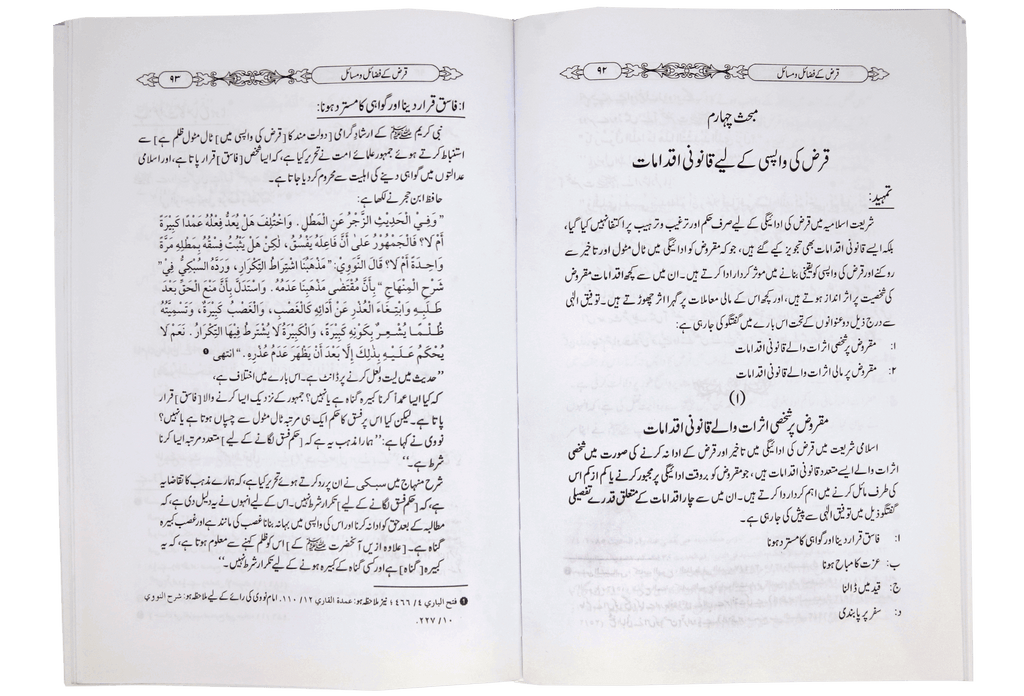 قرض کے فضائل و مسائل
۹۲
مبحث چہارم
قرض کی واپسی کے لیے قانونی اقدامات
تمہید:
شریعت اسلامیہ میں قرض کی ادائیگی کے لیے صرف حکم اور ترغیب و ترہیب پر اکتفا نہیں کیا گیا،
بلکہ ایسے قانونی اقدامات بھی تجویز کیے گئے ہیں، جو کہ مقروض کو ادائیگی میں ٹال مٹول اور تاخیر سے
روکنے اور قرض کی واپسی کو یقینی بنانے میں موثر کردار ادا کرتے ہیں۔ ان میں سے کچھ اقدامات مقروض
کی شخصیت پر اثر انداز ہوتے ہیں، اور کچھ اس کے مالی معاملات پر گہرا اثر چھوڑتے ہیں۔ توفیق الٰہی
سے درج ذیل دو عنوانوں کے تحت اس بارے میں گفتگو کی جا رہی ہے:
۱: مقروض پر شخصی اثرات والے قانونی اقدامات
۲: مقروض پر مالی اثرات والے قانونی اقدامات
(۱)
مقروض پر شخصی اثرات والے قانونی اقدامات
اسلامی شریعت میں قرض کی ادائیگی میں تاخیر اور قرض کے ادا نہ کرنے کی صورت میں شخصی
اثرات والے ایسے متعدد قانونی اقدامات ہیں، جو مقروض کو بروقت ادائیگی پر مجبور کرنے یا کم از کم اس
کی طرف مائل کرنے میں اہم کردار ادا کرتے ہیں۔ ان میں سے چار اقدامات کے متعلق قدرے تفصیلی
گفتگو ذیل میں توفیق الٰہی سے پیش کی جا رہی ہے۔
ا: فاسق قرار دینا اور گواہی کا مسترد ہونا
ب: عزت کا مباح ہونا
ج: قید میں ڈالنا
د: سفر پر پابندی
قرض کے فضائل و مسائل
۹۳
ا: فاسق قرار دینا اور گواہی کا مسترد ہونا:
نبی کریم ﷺ کے ارشادِ گرامی [دولت مند کا [قرض کی واپسی میں] ٹال مٹول ظلم ہے] سے
استنباط کرتے ہوئے جمہور علمائے امت نے تحریر کیا ہے، کہ ایسا شخص [فاسق] قرار پاتا ہے، اور اسلامی
عدالتوں میں گواہی دینے کی اہلیت سے محروم کر دیا جاتا ہے۔
حافظ ابن حجر نے لکھا ہے:
”وَفِي الْحَدِيْثِ الزَّجْرُ عَنِ الْمَطْلِ. وَاخْتُلِفَ هَلْ يُعَدُّ فِعْلُهُ عَمْدًا كَبِيْرَةً
أَمْ لَا؟ فَالْجَمْهُوْرُ عَلىٰ أَنَّ فَاعِلَهُ يَفْسُقُ، لٰكِنْ هَلْ يَثْبُتُ فِسْقُهُ بِمَطْلِهِ مَرَّةً
وَاحِدَةً أَمْ لَا؟ قَالَ النَّوَوِيُّ: ”مَذْهَبُنَا اشْتِرَاطُ التِّكْرَارِ، وَرَدَّهُ السُّبْكِيُّ فِيْ“
شَرْحِ الْمِنْهَاجِ“ بِأَنَّ مُقْتَضٰى مَذْهَبِنَا عَدَمُهُ. وَاسْتَدَلَّ بِأَنَّ مَنْعَ الْحَقِّ بَعْدَ
طَلَبِهِ وَابْتِغَاءَ الْعُذْرِ عَنْ أَدَائِهِ كَالْغَصْبِ، وَالْغَصْبُ كَبِيْرَةٌ، وَتَسْمِيَّتُهُ
ظُلْمًا يُشْعِرُ بِكَوْنِهِ كَبِيْرَةً، وَالْكَبِيْرَةُ لَا يُشْتَرَطُ فِيْهَا التِّكْرَارُ. نَعَمْ لَا
يُحْكَمُ عَلَيْهِ بِذٰلِكَ إِلَّا بَعْدَ أَنْ يَظْهَرَ عَدَمُ عُذْرِهِ.“ انتهى ❶
”حدیث میں لیت و لعل کرنے پر ڈانٹ ہے۔ اس بارے میں اختلاف ہے،
کہ کیا ایسا عمداً کرنا کبیرہ گناہ ہے یا نہیں؟ جمہور کے نزدیک ایسا کرنے والا [فاسق] قرار
پاتا ہے۔ لیکن کیا اس پر فسق کا حکم ایک ہی مرتبہ ٹال مٹول سے چسپاں ہوتا ہے یا نہیں؟
نووی نے کہا ہے: ”ہمارا مذہب یہ ہے کہ [حکم فسق لگانے کے لیے] متعدد مرتبہ ایسا کرنا
شرط ہے۔“
شرح منہاج میں سبکی نے ان پر رد کرتے ہوئے تحریر کیا ہے، کہ ہمارے مذہب کا تقاضا یہ
ہے، کہ [حکم فسق لگانے کے لیے] تکرار شرط نہیں۔ اس کے لیے انہوں نے یہ دلیل دی ہے، کہ
مطالبہ کے بعد حق کو ادا نہ کرنا اور اس کی واپسی میں بہانہ بنانا غصب کی مانند ہے اور غصب کبیرہ
گناہ ہے۔ [علاوہ ازیں آنحضرت ﷺ کے] اس کو ظلم کہنے سے معلوم ہوتا ہے، کہ یہ
کبیرہ [گناہ] ہے اور کسی گناہ کے کبیرہ ہونے کے لیے تکرار شرط نہیں۔“
❶ فتح الباري ٤/٤٦٦؛ نیز ملاحظہ ہو: عمدة القاري ١٢/١١٠۔ امام نووی کی رائے کے لیے ملاحظہ ہو: شرح النووي
١٠/٢٢٧۔